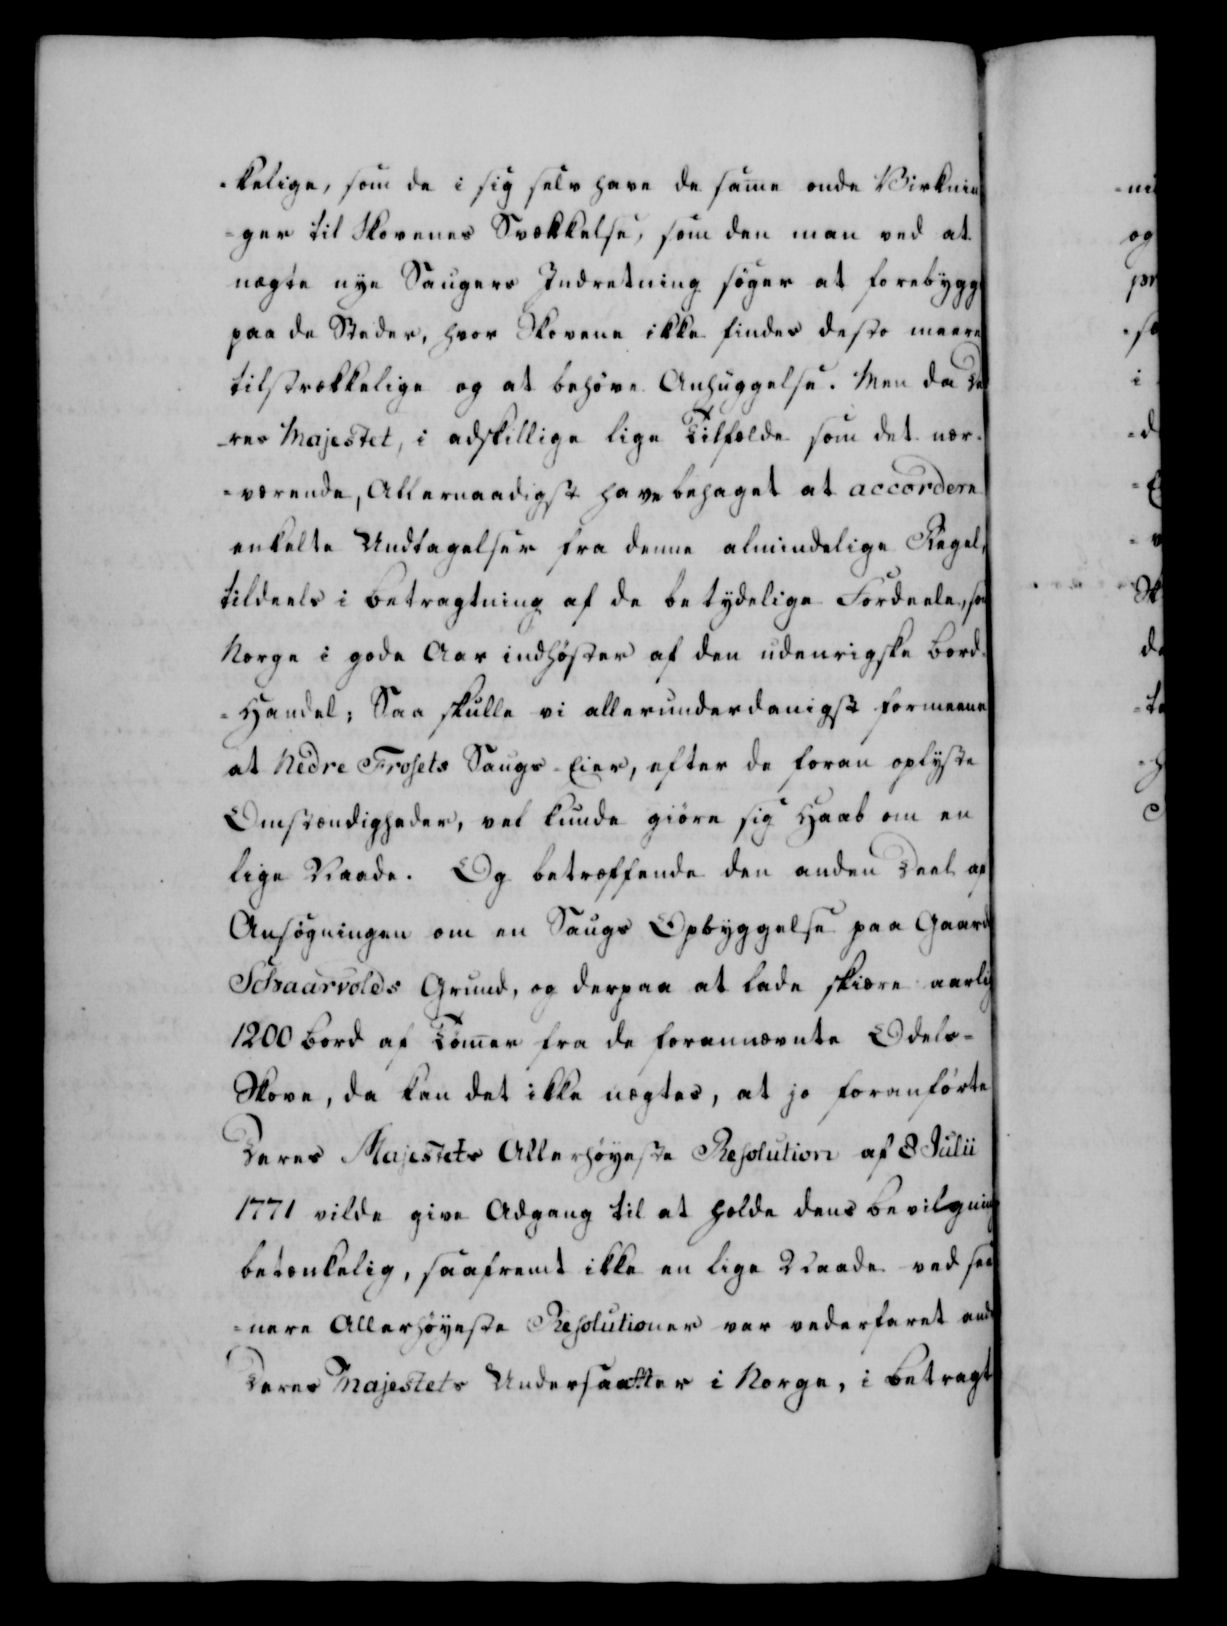 -kelige, som de i sig selv have de same onde Virknin
-ger til Skovenes Svækkelse, som den man ved at
nægte nye Saugers Indretning søger at forebygge
paa de Steder, hvor Skovene ikke findes desto meere
tilstrækkelige og at behøve Anhuggelse. Men da De
-res Majestet, i adskillige lige Tilfælde som det nær-
-værende, Allernaadigst have behaget at accordere
enkelte Undtagelser fra denne almindelige Regel,
tildeels i Betragtning af de betydelige Fordeele, som
Norge i gode Aar indhøster af den udenrigske Bord-
-Handel; Saa skulle vi allerunderdanigst formeene
at Nedre Frosets Saugs-Eier, efter de foran oplyste
Omstændigheder, vel kunde giøre sig Haab om en
lige Naade. Og betreffende den anden Deel af
Ansøgningen om en Saugs Opbyggelse paa Gaard
Schaarvolds Grund, og derpaa at lade skiære aarlig
1200 Bord af Tømer fra de forannævnte Odels-
Skove, da kan det ikke nægtes, at jo foranførte
Deres Majestets Allerhøyeste Resolution af 8 Julii
1771 vilde give Adgang til at holde dens Bevilgning
betænkelig, saafremt ikke en lige Naade ved see
-nere Allerhøyeste Resolutioner var vederfaret and
Deres Majestets Undersaatter i Norge, i Betragt